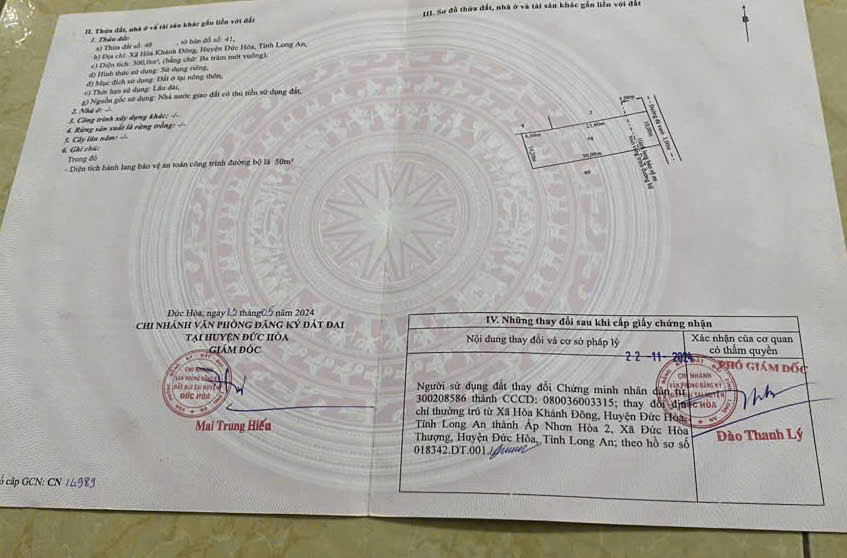 II. Thửa đất, nhà ở và tài sản khác gắn liền với đất
1. Thửa đất:
a) Thửa đất số: 48 , tờ bản đồ số: 41,
b) Địa chỉ: Xã Hòa Khánh Đông, Huyện Đức Hòa, Tỉnh Long An,
c) Diện tích: 300,0m², (bằng chữ: Ba trăm mét vuông),
d) Hình thức sử dụng: Sử dụng riêng,
đ) Mục đích sử dụng: Đất ở tại nông thôn,
e) Thời hạn sử dụng: Lâu dài,
g) Nguồn gốc sử dụng: Nhà nước giao đất có thu tiền sử dụng đất.
2. Nhà ở: -/-
3. Công trình xây dựng khác: -/-
4. Rừng sản xuất là rừng trồng: -/-
5. Cây lâu năm: -/-
6. Ghi chú:
Trong đó
- Diện tích hành lang bảo vệ an toàn công trình đường bộ là 50m²
Đức Hòa, ngày 15 tháng 05 năm 2024
CHI NHÁNH VĂN PHÒNG ĐĂNG KÝ ĐẤT ĐAI
TẠI HUYỆN ĐỨC HÒA
GIÁM ĐỐC
CHI NHÁNH
VĂN PHÒNG ĐĂNG KÝ
ĐẤT ĐAI TẠI HUYỆN
ĐỨC HÒA
Mai Trung Hiếu
số cấp GCN: CN 14989
III. Sơ đồ thửa đất, nhà ở và tài sản khác gắn liền với đất
B
5,00m
9
2
6,60m
23,40m
48
10,00m
10,00m
30,00m
46
Hành lang bảo vệ an
toàn công trình đường bộ
IV. Những thay đổi sau khi cấp giấy chứng nhận
Nội dung thay đổi và cơ sở pháp lý
Xác nhận của cơ quan
có thẩm quyền
22-11-2024
PHÓ GIÁM ĐỐC
Người sử dụng đất thay đổi Chứng minh nhân dân số
300208586 thành CCCD: 080036003315; thay đổi địa
chỉ thường trú từ Xã Hòa Khánh Đông, Huyện Đức Hòa,
Tỉnh Long An thành Ấp Nhơn Hòa 2, Xã Đức Hòa
Thượng, Huyện Đức Hòa, Tỉnh Long An; theo hồ sơ số
018342.DT.001./
CHI NHÁNH
VĂN PHÒNG ĐĂNG KÝ
ĐẤT ĐAI TẠI HUYỆN
ĐỨC HÒA
Đào Thanh Lý